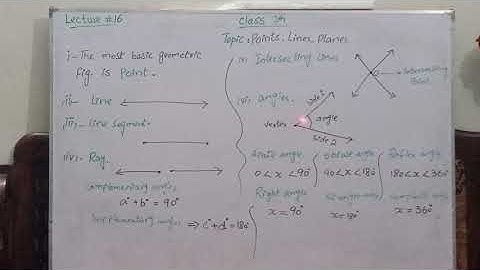 Lecture #16
Class 7th
Topic: Points, Lines, Planes
i- The most basic geometric
fig. is Point.
ii- Line
iii- Line segment.
iv- Ray
Complementary angles
a° + b° = 90°
Supplementary angles ⇒ c° + d° = 180°
Intersecting Lines
Intersecting
Point
angles.
Side 1
angle
vertex
Side 2
Acute angle
0 < x < 90°
Obtuse angle
90 < x < 180°
Reflex angle
180 < x < 360°
Right angle
x = 90°
x = 180°
x = 360°